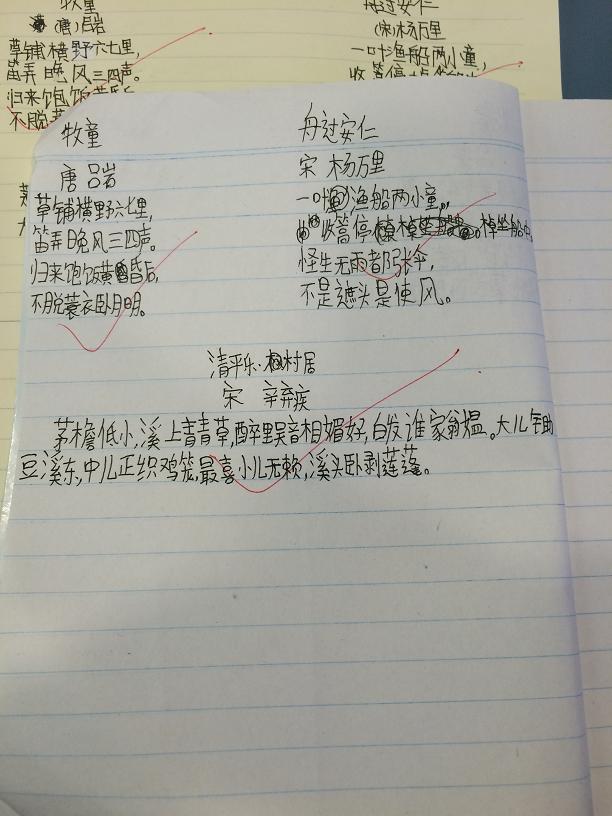 牧童
(唐)吕岩
草铺横野六七里,
笛弄晚风三四声。
归来饱饭
不脱
舟过安仁
(宋)杨万里
一叶渔船两小童,
收篙停
牧童
唐 吕岩
草铺横野六七里,
笛弄晚风三四声。
归来饱饭黄昏后,
不脱蓑衣卧月明。
舟过安仁
宋 杨万里
一叶渔船两小童,
收篙停棹坐船中。
怪生无雨都张伞,
不是遮头是使风。
清平乐·村居
宋 辛弃疾
茅檐低小,溪上青青草,醉里吴音相媚好,白发谁家翁媪。大儿
豆溪东,中儿正织鸡笼,最喜小儿无赖,溪头卧剥莲蓬。